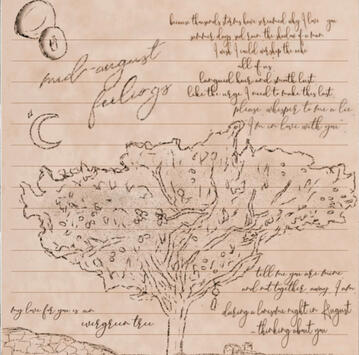 because thousands storms have screamed why I love you
summer days and rum the shadow of a man
I wish I could worship the
all of us
languid hair and mouth lust
like the urge I need to make this last
please whisper to me a lie
I'm in love with you"
mid-august
feelings
tell me you are mine
and not together away, I am
during a lonesome night in August
- thinking about you
my love for you is an
evergreen tree